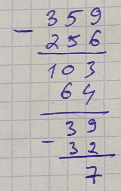 - 359
256
103
64
39
- 32
7